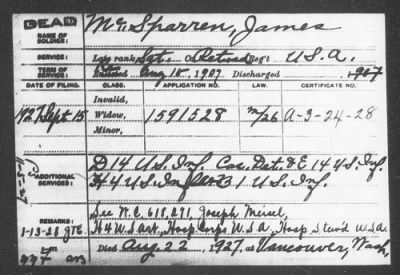 DEAD
NAME OF SOLDIER: McSparren, James
SERVICE: Late rank, Sgt. Retired Reg't U.S.A.
TERM OF SERVICE: Enlisted Aug 15, 1907 Discharged 1907
DATE OF FILING. CLASS. APPLICATION NO. LAW. CERTIFICATE NO.
Invalid,
1927 Sept 15 Widow, 1591528 A-3-24-28
Minor,
D 14 U.S. Inf. Cas. Det. & E 14 U.S. Inf.
ADDITIONAL SERVICES: H 4 U.S. Inf. 31 U.S. Inf.
REMARKS: See W.C. 618,271, Joseph Meisel,
1-13-28 H 4 U.S. Art., Hosp. Corps U.S.A., Hosp. Stew'd U.S.A.
Died Aug. 22, 1927, at Vancouver, Wash.